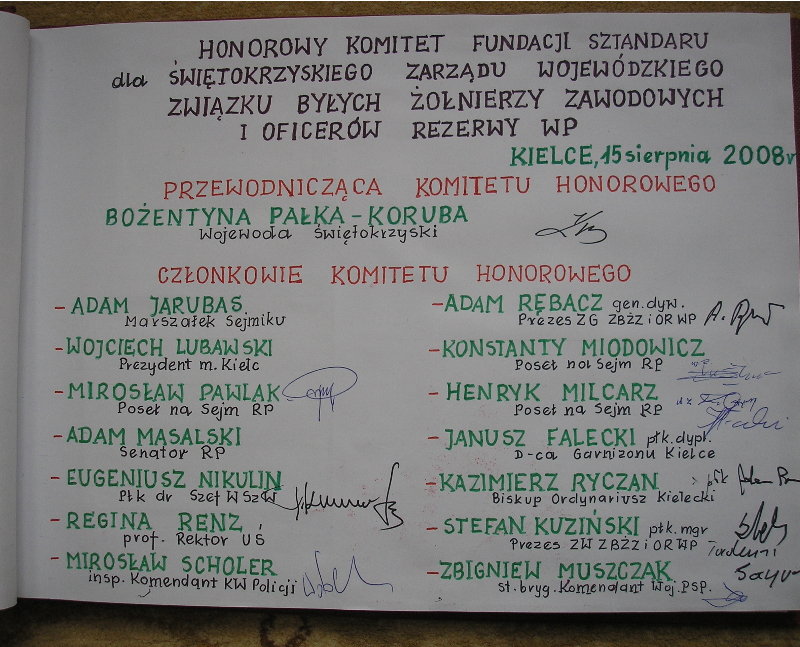 HONOROWY KOMITET FUNDACJI SZTANDARU
dla ŚWIĘTOKRZYSKIEGO ZARZĄDU WOJEWÓDZKIEGO
ZWIĄZKU BYŁYCH ŻOŁNIERZY ZAWODOWYCH
I OFICERÓW REZERWY WP
KIELCE, 15 sierpnia 2008r
PRZEWODNICZĄCA KOMITETU HONOROWEGO
BOŻENTYNA PAŁKA-KORUBA
Wojewoda Świętokrzyski
CZŁONKOWIE KOMITETU HONOROWEGO
- ADAM JARUBAS
Marszałek Sejmiku
- WOJCIECH LUBAWSKI
Prezydent m. Kielc
- MIROSŁAW PAWLAK
Poseł na Sejm RP
- ADAM MASALSKI
Senator RP
- EUGENIUSZ NIKULIN
Płk dr Szef WSzW
- REGINA RENZ
prof. Rektor UŚ
- MIROSŁAW SCHOLER
insp. Komendant KW Policji
- ADAM RĘBACZ gen. dyw.
Prezes ZG ZBŻZ i OR WP
- KONSTANTY MIODOWICZ
Poseł na Sejm RP
- HENRYK MILCARZ
Poseł na Sejm RP
- JANUSZ FALECKI płk. dypl.
D-ca Garnizonu Kielce
- KAZIMIERZ RYCZAN
Biskup Ordynariusz Kielecki
- STEFAN KUZIŃSKI płk. mgr
Prezes ZW ZBŻZ i OR WP
- ZBIGNIEW MUSZCZAK
st. bryg. Komendant Woj. PSP.